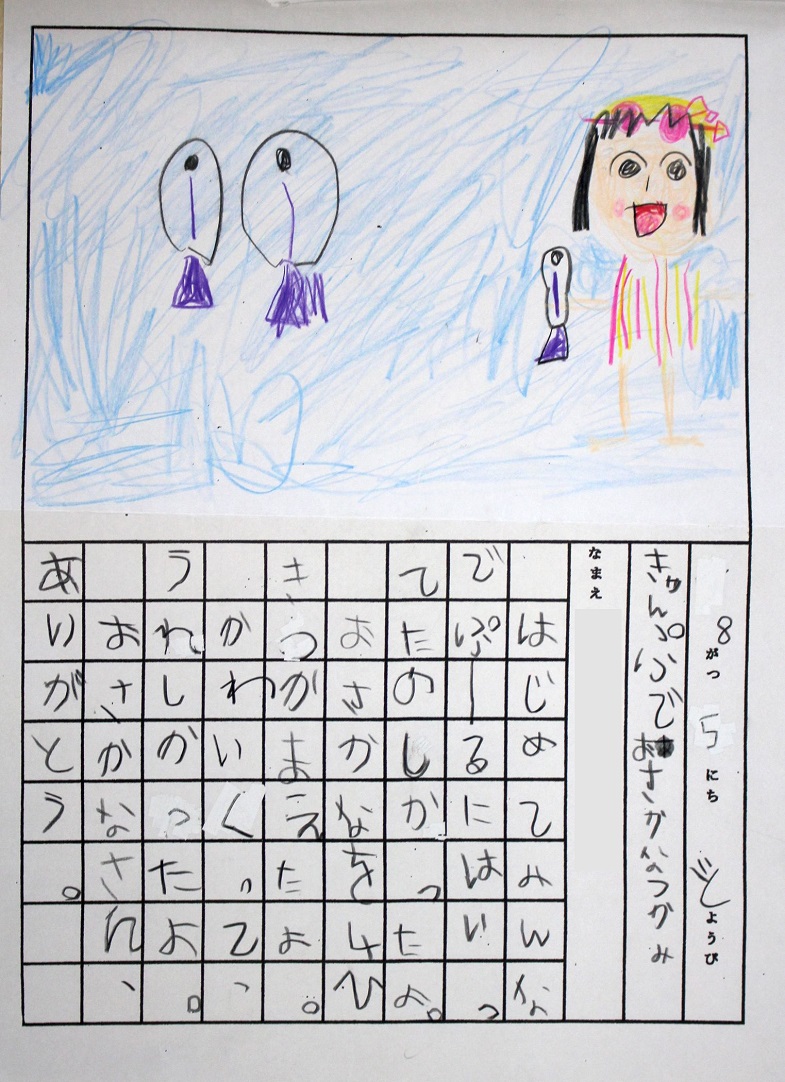 8がつ5にちどようび
きゃんぷでおさかなつかみ
なまえ
はじめてみんな
でぷーるにはいっ
てたのしかったよ。
おさかなを4ひ
きつかまえたよ。
かわいくって、
うれしかったよ。
おさかなさん、
ありがとう。